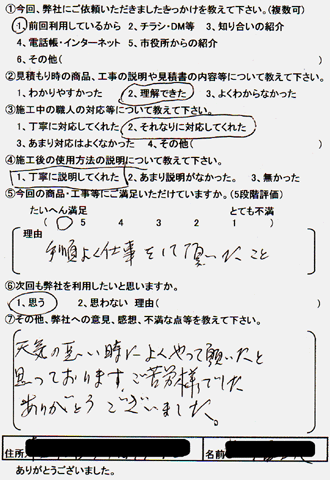 ①今回、弊社にご依頼いただきましたきっかけを教えて下さい。(複数可)
1、前回利用しているから 2、チラシ・DM等 3、知り合いの紹介
4、電話帳・インターネット 5、市役所からの紹介
6、その他( )
②見積もり時の商品、工事の説明や見積書の内容等について教えて下さい。
1、わかりやすかった 2、理解できた 3、よくわからなかった
③施工中の職人の対応等について教えて下さい。
1、丁寧に対応してくれた 2、それなりに対応してくれた
3、あまり対応はよくなかった 4、その他( )
④施工後の使用方法の説明について教えて下さい。
1、丁寧に説明してくれた 2、あまり説明がなかった。 3、無かった
⑤今回の商品・工事等にご満足いただけていますか。(5段階評価)
たいへん満足 とても不満
( 5 4 3 2 1 )
理由
手順よく仕事をして頂いたこと
⑥次回も弊社を利用したいと思いますか。
1、思う 2、思わない 理由( )
⑦その他、弊社への意見、感想、不満な点等を教えて下さい。
天気の悪い時によくやって頂いたと
思っております。ご苦労様でした
ありがとうございました。
住所 名前
ありがとうございました。